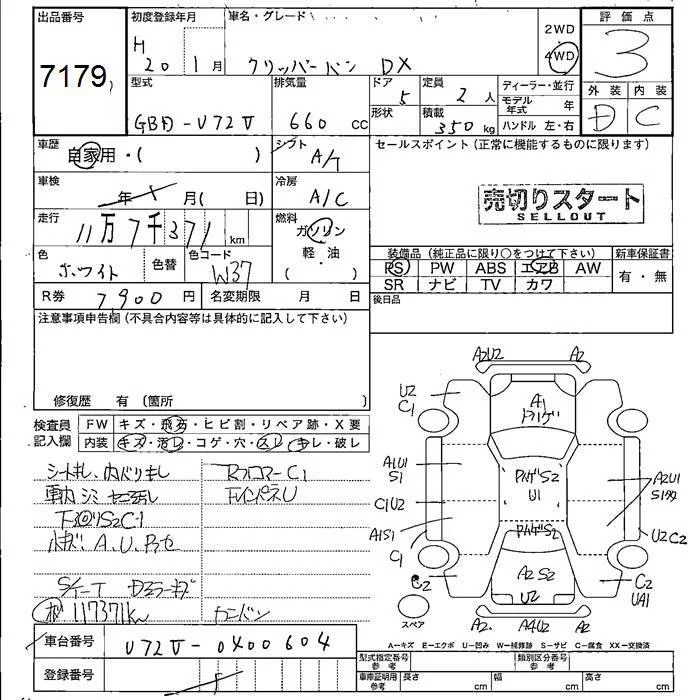 出品番号 初度登録年月 車名・グレード 2WD 評価点
7179 H 20年1月 クリッパーバン DX 4WD 3
型式 排気量 ドア 5 定員 2人 ディーラー・並行 外装 内装
GBD-U72V 660 cc 形状 積載 350 kg モデル年式 年 D C
ハンドル 左・右
車歴 自家用・( ) シフト A/T セールスポイント(正常に機能するものに限ります)
車検 年 月( 日) 冷房 A/C
売切りスタート
SELLOUT
走行 11万7千371 km 燃料 ガソリン
軽・油
( )
色 ホワイト 色替 色コード W37
装備品(純正品に限り〇をつけて下さい) 新車保証書
PS PW ABS エアB AW 有・無
SR ナビ TV カワ
R券 7900円 名変期限 月 日 後日品
注意事項申告欄(不具合内容等は具体的に記入して下さい)
修復歴 有〔箇所 〕
検査員記入欄 FW キズ・飛石・ヒビ割・リペア跡・X要
内装 キズ・汚レ・コゲ・穴・スレ・キレ・破レ
シートキレ、内バリキレ RフロアーC1
FインパネU
A.U.
117371km
車台番号 U72V-0400604
登録番号
A2U2 A2
U2
C1
A1
A1U1
S1
S2
U1
A2U1
C1U2
A1S1
U2C2
C1
C2
A2S2
U2
C2
UA1
スペア A2 A4U2 A2
A=キズ E=エクボ U=凹み W=補修跡 S=サビ C=腐食 XX=交換済
型式指定番号 参考 類別区分番号 参考
車庫証明用 参考 長さ cm 幅 cm 高さ cm